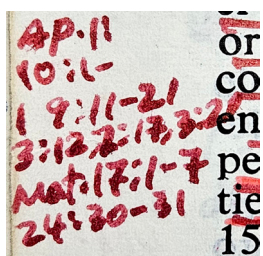 Ap. 11
10:1-
1 9:11-21
3:12,2:17,3:21
Mat:17:1-7
24:30-31
or
co
en
pe
tie
15